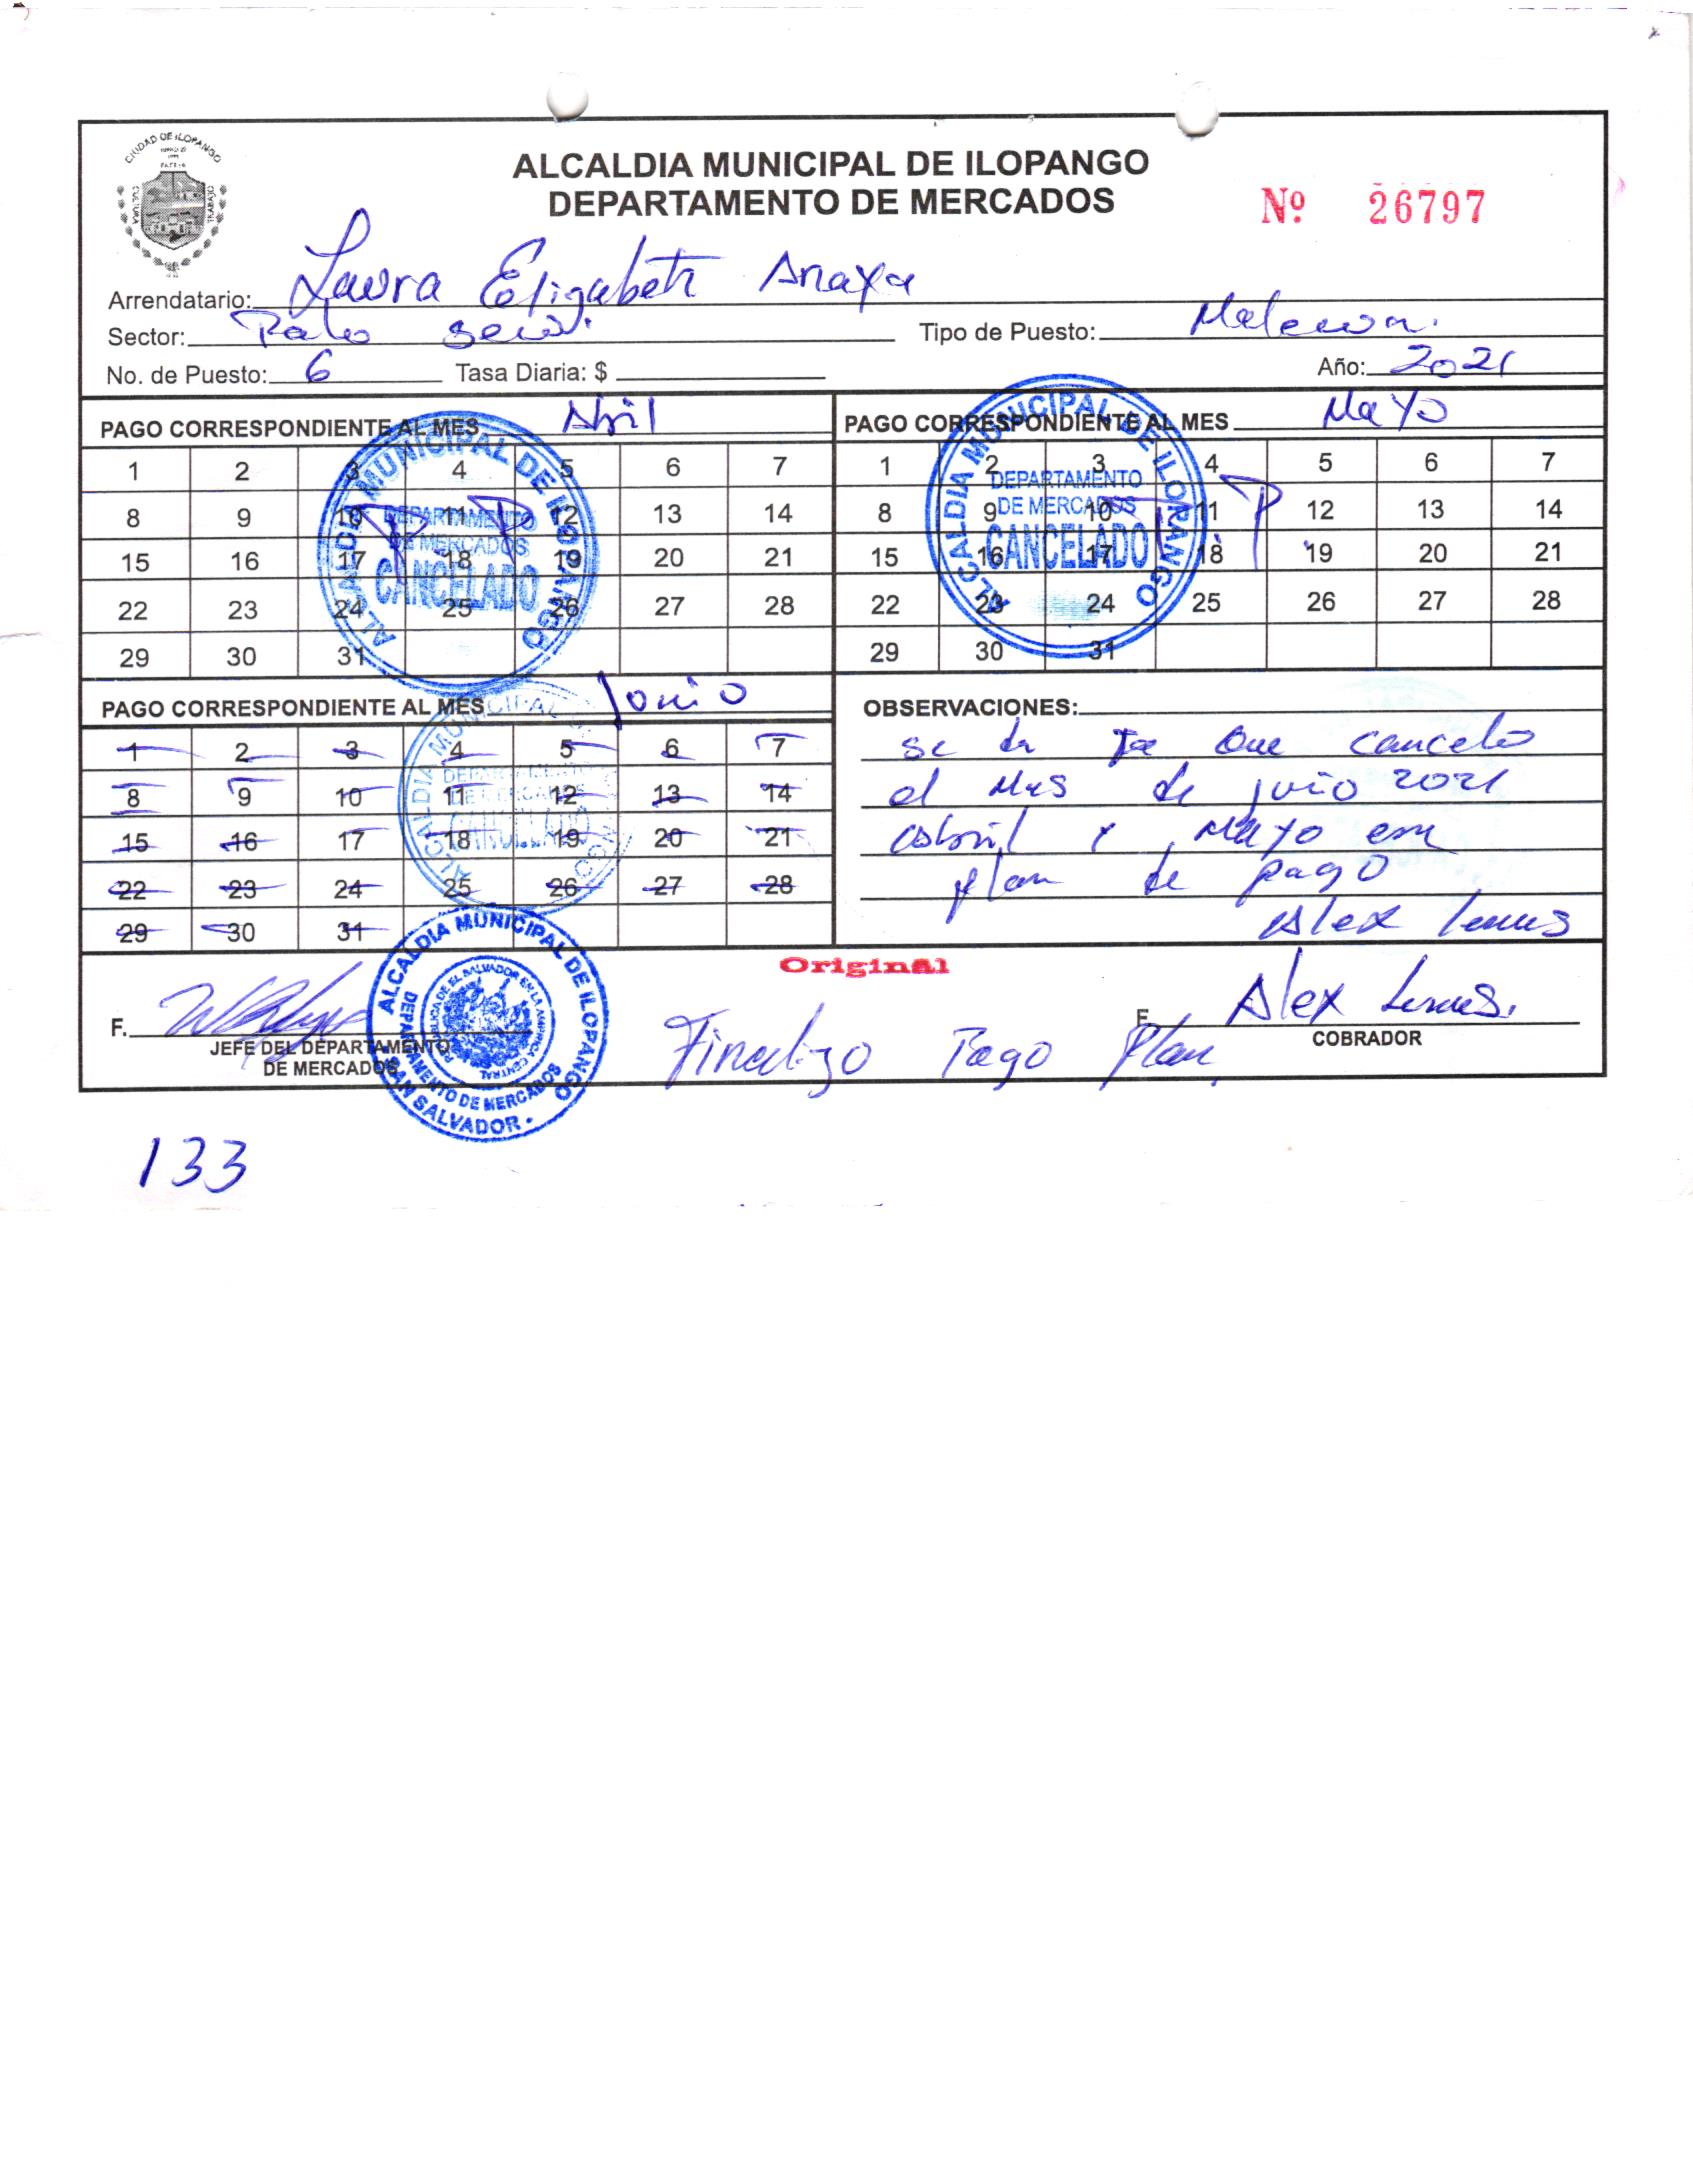 CIUDAD DE ILOPANGO
CULTURA
TRABAJO
ALCALDIA MUNICIPAL DE ILOPANGO
DEPARTAMENTO DE MERCADOS
Nº 26797
Arrendatario: Laura Elizabeth Anaya
Sector: Palo Seco. Tipo de Puesto: Malecon.
No. de Puesto: 6 Tasa Diaria: $ Año: 2021
PAGO CORRESPONDIENTE AL MES Abril
1 2 3 4 5 6 7
8 9 10 11 12 13 14
15 16 17 18 19 20 21
22 23 24 25 26 27 28
29 30 31
ALCALDIA MUNICIPAL DE ILOPANGO
DEPARTAMENTO
DE MERCADOS
CANCELADO
PP
PAGO CORRESPONDIENTE AL MES Mayo
1 2 3 4 5 6 7
8 9 10 11 12 13 14
15 16 17 18 19 20 21
22 23 24 25 26 27 28
29 30 31
ALCALDIA MUNICIPAL DE ILOPANGO
DEPARTAMENTO
DE MERCADOS
CANCELADO
PP
PAGO CORRESPONDIENTE AL MES Junio
1 2 3 4 5 6 7
8 9 10 11 12 13 14
15 16 17 18 19 20 21
22 23 24 25 26 27 28
29 30 31
ALCALDIA MUNICIPAL
DEPARTAMENTO
DE MERCADOS
CANCELADO
OBSERVACIONES:
se da Fe Que cancelo
el Mes de junio 2021
Abril y Mayo en
plan de pago
Alex Lemus
Original
F.
JEFE DEL DEPARTAMENTO
DE MERCADOS
ALCALDIA MUNICIPAL DE ILOPANGO
DEPARTAMENTO DE MERCADOS
SAN SALVADOR
REPUBLICA DE EL SALVADOR EN LA AMERICA CENTRAL
Finalizo Pago Plan
F. Alex Lemus.
COBRADOR
133